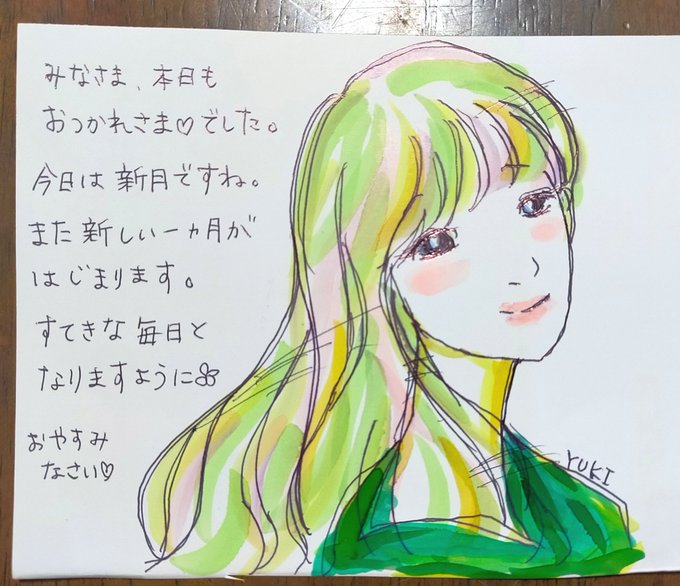 みなさま、本日も
おつかれさま♡でした。
今日は新月ですね。
また新しい一ヵ月が
はじまります。
すてきな毎日と
なりますように
おやすみ
なさい♡
YUKI